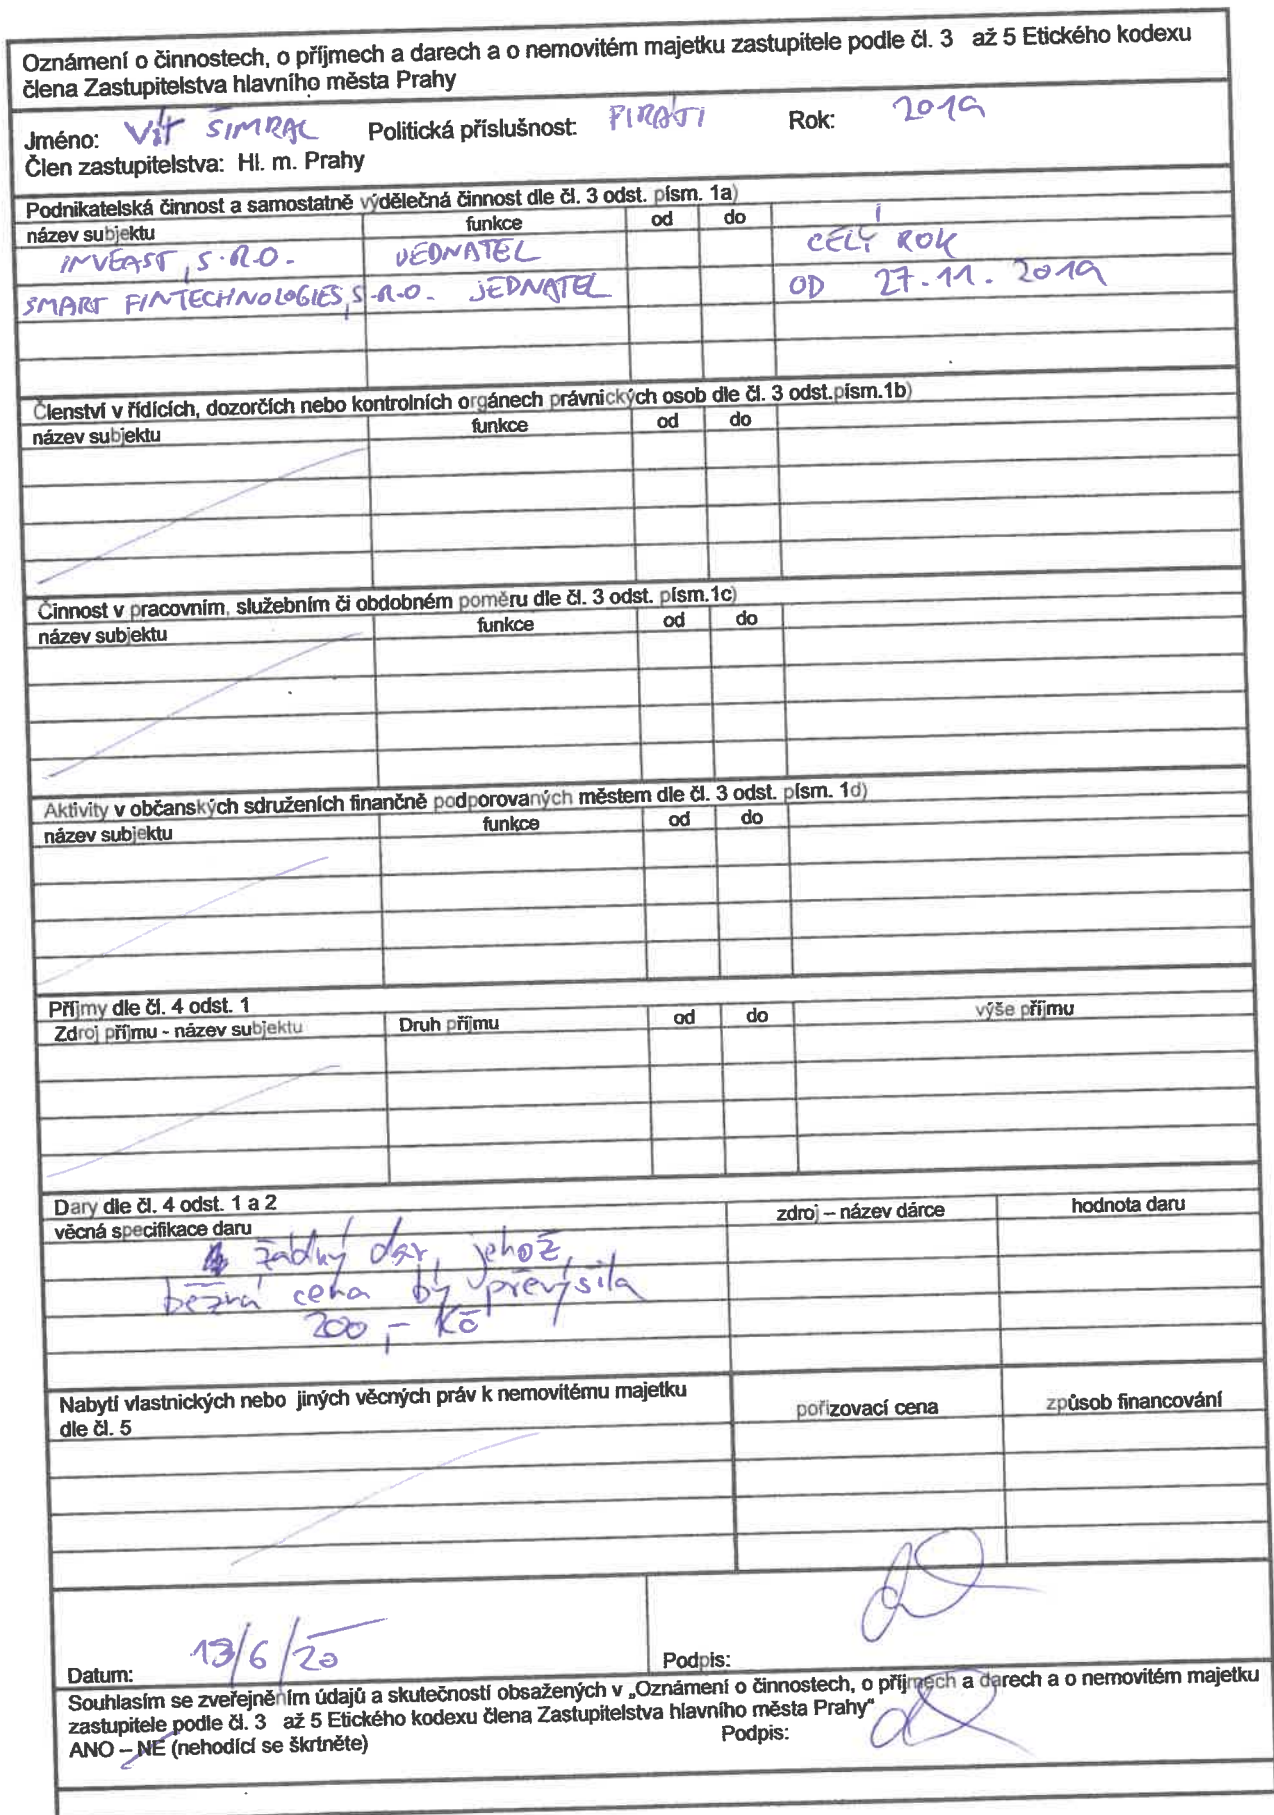 Oznámení o činnostech, o příjmech a darech a o nemovitém majetku zastupitele podle čl. 3 až 5 Etického kodexu
člena Zastupitelstva hlavního města Prahy
Jméno: VÍT ŠIMRAL Politická příslušnost: PIRÁTI Rok: 2019
Člen zastupitelstva: Hl. m. Prahy
Podnikatelská činnost a samostatně výdělečná činnost dle čl. 3 odst. písm. 1a)
název subjektu funkce od do
INVEAST, S.R.O. JEDNATEL CELÝ ROK
SMART FINTECHNOLOGIES, S.R.O. JEDNATEL OD 27.11.2019
Členství v řídících, dozorčích nebo kontrolních orgánech právnických osob dle čl. 3 odst.písm.1b)
název subjektu funkce od do
Činnost v pracovním, služebním či obdobném poměru dle čl. 3 odst. písm.1c)
název subjektu funkce od do
Aktivity v občanských sdruženích finančně podporovaných městem dle čl. 3 odst. písm. 1d)
název subjektu funkce od do
Příjmy dle čl. 4 odst. 1
Zdroj příjmu - název subjektu Druh příjmu od do výše příjmu
Dary dle čl. 4 odst. 1 a 2
věcná specifikace daru zdroj – název dárce hodnota daru
žádný dar, jehož
běžná cena by převýsila
200,- Kč
Nabytí vlastnických nebo jiných věcných práv k nemovitému majetku
dle čl. 5 pořizovací cena způsob financování
Datum: 13/6/20 Podpis:
Souhlasím se zveřejněním údajů a skutečností obsažených v „Oznámení o činnostech, o příjmech a darech a o nemovitém majetku
zastupitele podle čl. 3 až 5 Etického kodexu člena Zastupitelstva hlavního města Prahy"
ANO – NE (nehodící se škrtněte) Podpis: